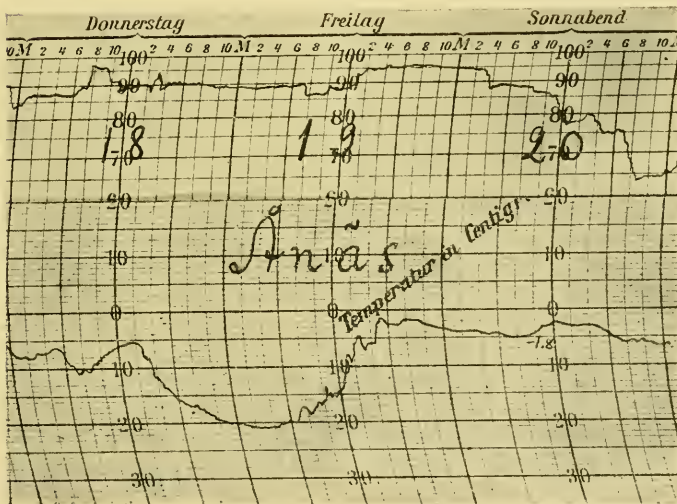 Donnerstag Freitag Sonnabend
10 M 2 4 6 8 10 2 4 6 8 10 M 2 4 6 8 10 2 4 6 8 10 M 2 4 6 8 10 2 4 6 8 10
100 100 100
90 90 90
80 80 80
18 19 20
70 70 70
20 20 20
Ånäs
10 10 10
Temperatur in Centigr.
0 0 0
-1.8
10 10 10
20 20 20
30 30 30